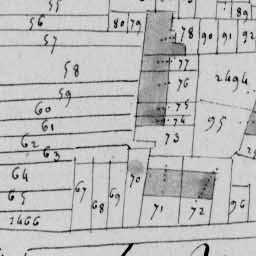 55
89
56 80 79 78 90 91 92
57
77
58 76 2494
59
75
60 74 95
61
73
62
63
64 70
65 67 68 69 71 72 96
2466